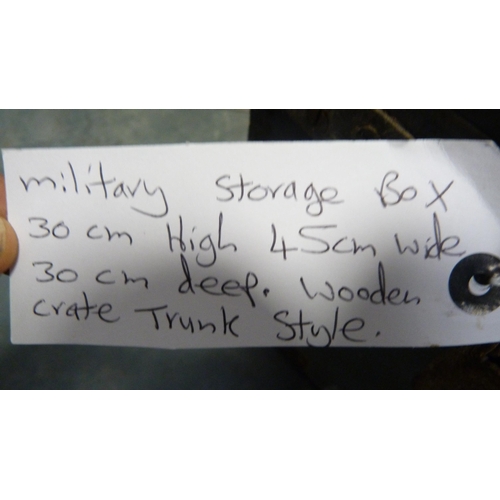 military Storage Box
30 cm High 45cm wide
30 cm deep. wooden
crate Trunk Style.